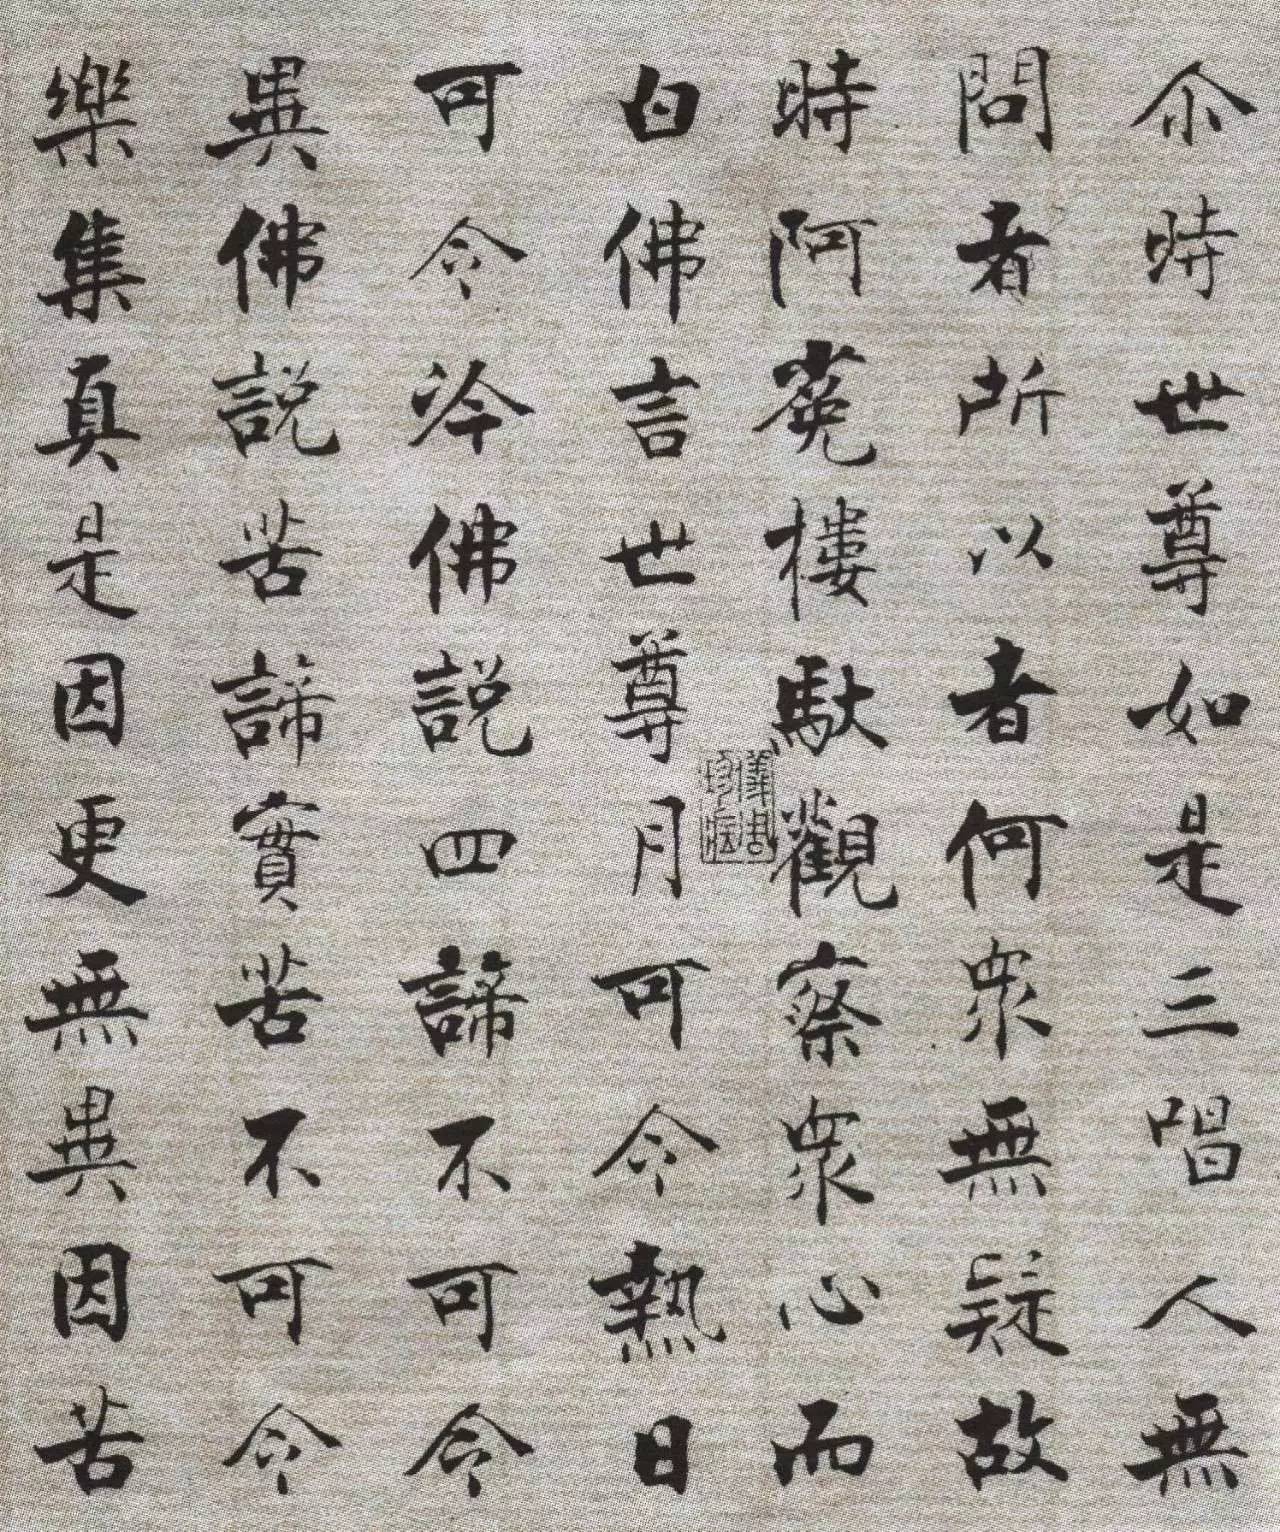 尒時世尊如是三唱人無
問者所以者何眾無疑故
時阿菟樓馱觀察眾心而
白佛言世尊月可令熱日
可令冷佛說四諦不可令
異佛說苦諦實苦不可令
樂集真是因更無異因苦
儀周珍藏